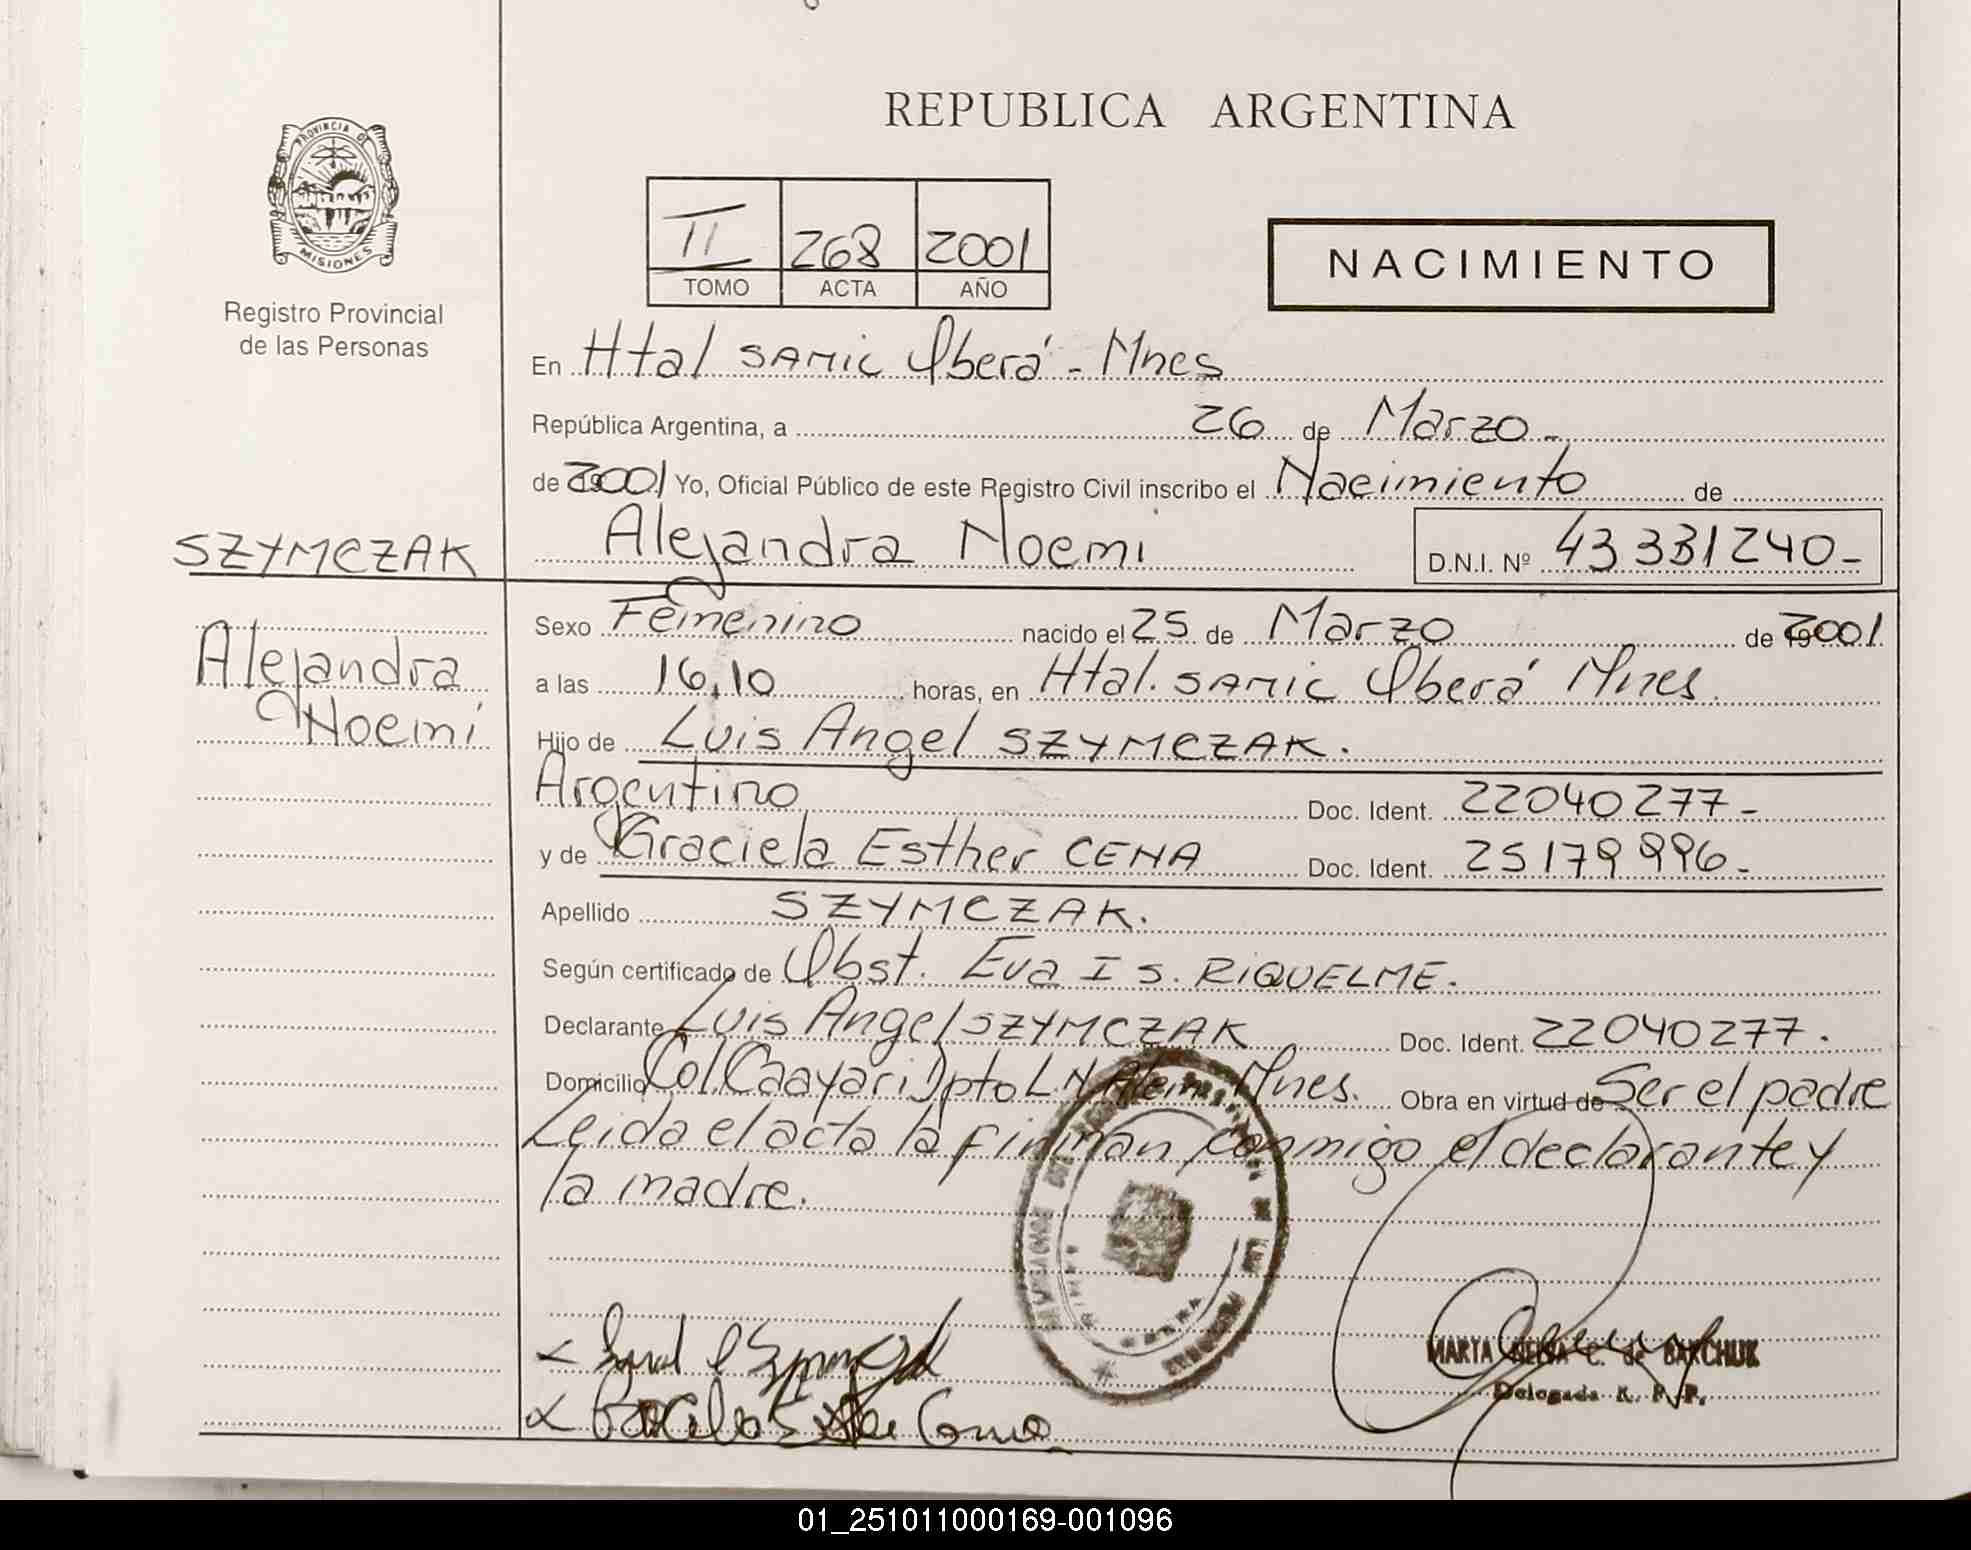 REPUBLICA ARGENTINA
PROVINCIA DE
MISIONES
Registro Provincial
de las Personas
II 268 2001
TOMO ACTA AÑO
NACIMIENTO
En Htal SAMIC Oberá - Mnes
República Argentina, a 26 de Marzo -
de 2001 Yo, Oficial Público de este Registro Civil inscribo el Nacimiento de
SZYMCZAK
Alejandra Noemi D.N.I. Nº 43 331240-
Alejandra
Noemi
Sexo Femenino nacido el 25 de Marzo de 2001
a las 16,10 horas, en Htal. SAMIC Oberá Mnes.
Hijo de Luis Angel SZYMCZAK.
Argentino Doc. Ident. 22040277-
y de Graciela Esther CENA Doc. Ident. 25179996-
Apellido SZYMCZAK.
Según certificado de Obst. Eva I S. RIQUELME.
Declarante Luis Angel SZYMCZAK Doc. Ident. 22040277.
Domicilio Col. Caayari Dpto L.N. Alem Mnes. Obra en virtud de Ser el padre
Leida el acta la firman conmigo el declarante y
la madre.
MARTA C. de BARCHUK
Delegada R. P. P.
01_251011000169-001096